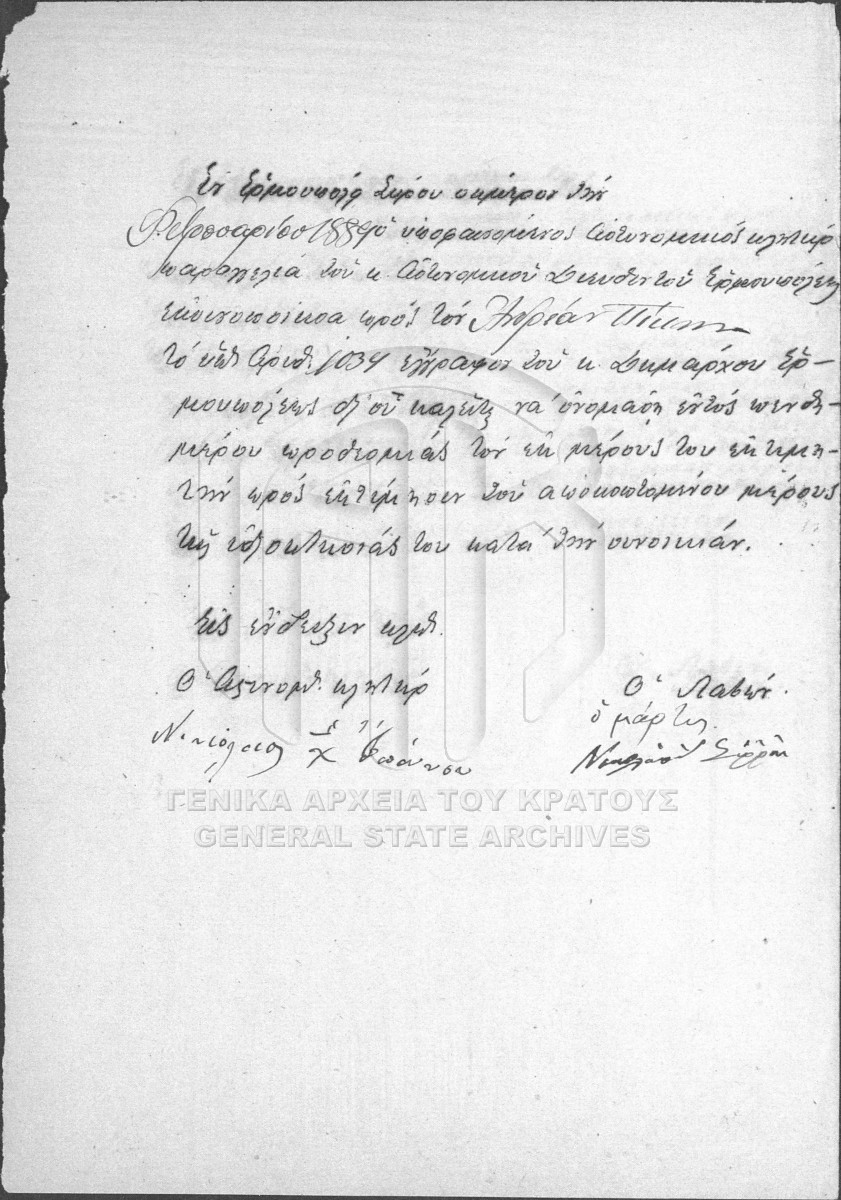 Ἐν Ἑρμουπόλῃ Σύρου σήμερον τὴν
Φεβρουαρίου 1889 ὁ ὑποφαινόμενος ἀστυνομικός κλητήρ
παραγγελίᾳ τοῦ κ. Ἀστυνομικοῦ Διευθυντοῦ Ἑρμουπόλεως
ἐκοινοποίησα πρός τόν Ἀνδρέαν
τό ὑπ' ἀριθ. 1034 ἔγγραφον τοῦ κ. Δημάρχου Ἑρ-
μουπόλεως δι' οὗ καλεῖται νά ὀνομάσῃ ἐντός πενθη-
μέρου προθεσμίας τόν ἐκ μέρους του ἐκτιμη-
τήν πρός ἐκτίμησιν τοῦ ἀποκοπτομένου μέρους
τῆς ἰδιοκτησίας του κατά τήν συνοικίαν.
Εἰς ἔνδειξιν κλπ.
Ὁ Ἀστυνομ. κλητήρ
Ὁ Λαβών.
ὁ μάρτυς
Νικόλαος Χ Ἰωάννου
ΓΕΝΙΚΑ ΑΡΧΕΙΑ ΤΟΥ ΚΡΑΤΟΥΣ
GENERAL STATE ARCHIVES